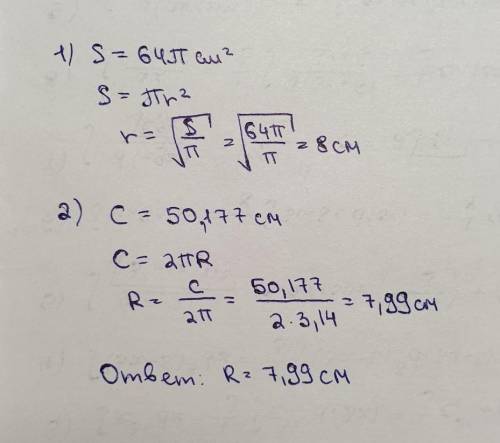 1) S = 64π см²
S = πr²
r = √(S/π) = √(64π/π) = 8 см
2) C = 50,177 см
C = 2πR
R = C/2π = 50,177/2·3,14 = 7,99 см
Ответ: R = 7,99 см